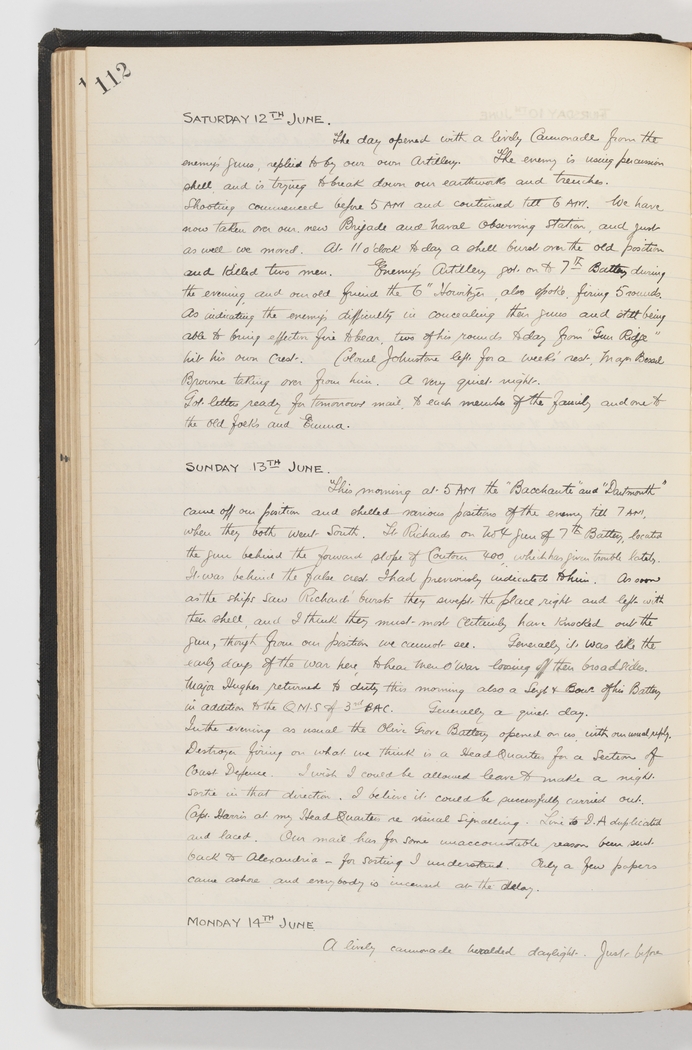 112
SATURDAY 12TH JUNE.
The day opened with a lively Cannonade from the
enemy's guns, replied to by our own Artillery. The enemy is using percussion
shell, and is trying to break down our earthworks and trenches.
Shooting commenced before 5 AM and continued till 6 AM. We have
now taken over our new Brigade and Naval Observing Station, and just
as well we moved. At 11 o'clock today a shell burst over the old position
and killed two men. Enemy's Artillery got on to 7th Battery during
the evening, and our old friend the 6" Howitzer, also spoke, firing 5 rounds.
As indicating the enemy's difficulty in concealing their guns and still being
able to bring effective fire to bear, two of his rounds today from "Gun Ridge"
hit his own Crest. Colonel Johnstone left for a weeks' rest, Major Bessel
Browne taking over from him. A very quiet night.
Got letters ready for tomorrows mail, to each member of the family and one to
the old folks and Emma.
SUNDAY 13TH JUNE.
This morning at 5 AM the "Bacchante" and "Dartmouth"
came off our position and shelled various positions of the enemy till 7 AM,
when they both went South. Lt Richards on No 4 gun of 7th Battery, located
the gun behind the forward slope of Contour 400, which has given trouble lately.
It was behind the false crest I had previously indicated to him. As soon
as the ships saw Richards' bursts they swept the place right and left with
their shell, and I think they must most certainly have knocked out the
gun, though from our position we cannot see. Generally it was like the
early days of the war here, to hear Men O'War loosing off their broadsides.
Major Hughes returned to duty this morning also a Sergt & Bomr of his Battery
in addition to the Q.M.S of 3rd BAC. Generally a quiet day.
In the evening as usual the Olive Grove Battery opened on us, with our usual reply.
Destroyer firing on what we think is a Head Quarters for a Section of
Coast Defence. I wish I could be allowed leave to make a night
Sortie in that direction. I believe it could be successfully carried out.
Capt. Harris at my Head Quarters re visual Signalling. Line to D.A duplicated
and laced. Our mail has for some unaccountable reason been sent
back to Alexandria – for sorting I understand. Only a few papers
came ashore and everybody is incensed at the delay.
MONDAY 14TH JUNE
A lively cannonade heralded daylight. Just before